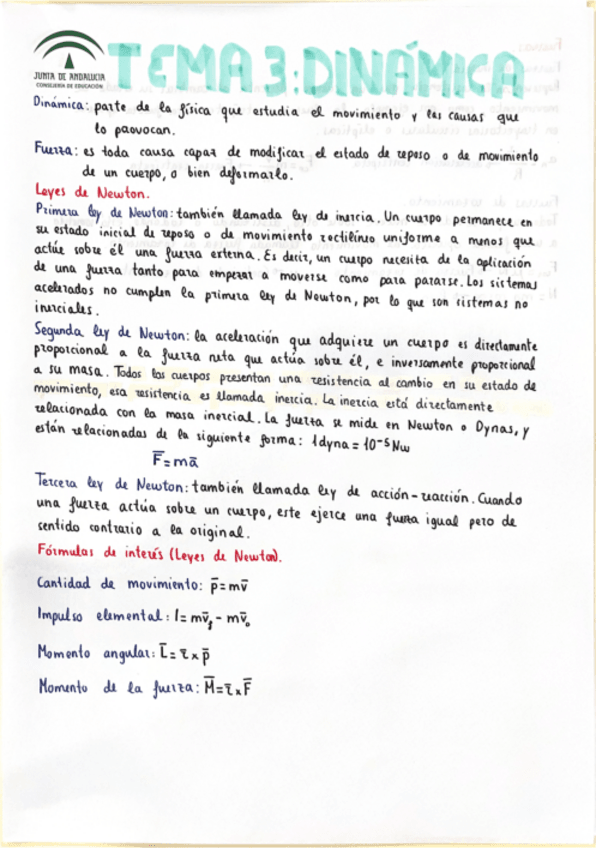 JUNTA DE ANDALUCIA
CONSEJERÍA DE EDUCACIÓN
TEMA 3: DINÁMICA
Dinámica: parte de la física que estudia el movimiento y las causas que
lo paovocan.
Fuerza: es toda causa capaz de modificar el estado de reposo o de movimiento
de un cuerpo, o bien deformarlo.
Leyes de Newton.
Primera ley de Newton: también llamada ley de inercia. Un cuerpo permanece en
su estado inicial de reposo o de movimiento rectilíneo uniforme a menos que
actúe sobre él una fuerza externa. Es decir, un cuerpo necesita de la aplicación
de una fuerza tanto para empezar a moverse como para pararse. Los sistemas
acelerados no cumplen la primera ley de Newton, por lo que son sistemas no
inerciales.
Segunda ley de Newton: la aceleración que adquiere un cuerpo es directamente
proporcional a la fuerza neta que actúa sobre él, e inversamente proporcional
a su masa. Todos los cuerpos presentan una resistencia al cambio en su estado de
movimiento, esa resistencia es llamada inercia. La inercia está directamente
relacionada con la masa inercial. La fuerza se mide en Newton o Dynas, y
están relacionadas de la siguiente forma: 1dyna = 10⁻⁵ Nw
F̅ = ma̅
Tercera ley de Newton: también llamada ley de acción-reacción. Cuando
una fuerza actúa sobre un cuerpo, este ejerce una fuerza igual pero de
sentido contrario a la original.
Fórmulas de interés (Leyes de Newton).
Cantidad de movimiento: p̅ = mv̅
Impulso elemental: I = mv̅f - mv̅₀
Momento angular: L̅ = r̅ x p̅
Momento de la fuerza: M̅ = r̅ x F̅